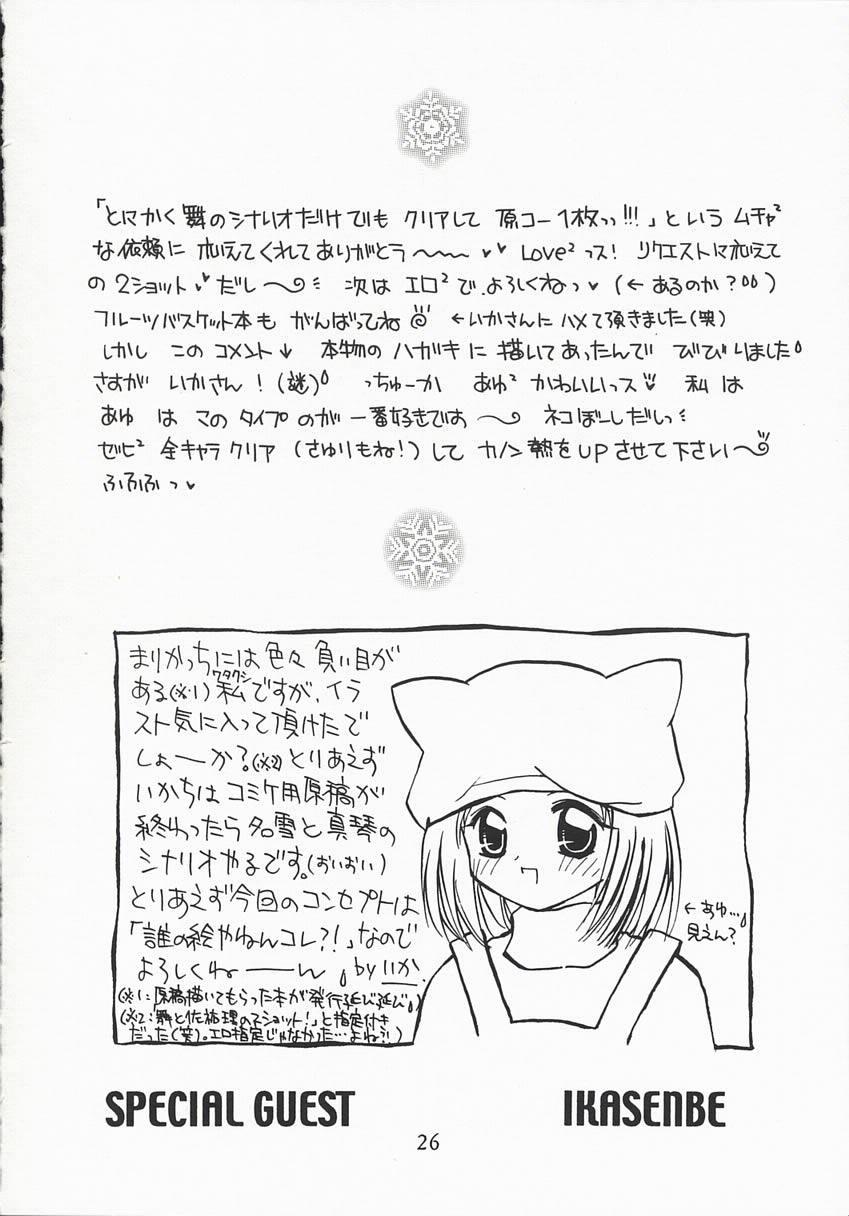 「とにかく舞のシナリオだけでも クリアして 原コー1枚っっ!!!」という ムチャ²
な依頼に 応えてくれてありがとう〜〜 ♥♥ LOVE²っス! リクエストに応えて
の 2ショット♥だし〜 次は エロ²で、よろしくねっ♥ (←あるのか?)
フルーツバスケット本も がんばってね ←いかさんにハメて頂きました(笑)
しかし この コメント↓ 本物の ハガキに描いてあったんで びびりました
さすが いかさん!(謎) っちゅーか あゆ² かわいいっス♥ 私は
あゆ は この タイプ のが 一番好きです〜 ネコぼーしだしっ
ゼヒ² 全キャラ クリア (さゆりもね!)して カノン 熱を UP させて下さい〜
ふふふっ♥
まりかっちには色々負い目が
ワタクシ
ある(※1)私ですが、イラ
スト気に入って頂けたで
しょーか?(※2)とりあえず
いかちはコミケ用原稿が
終わったら名雪と真琴の
シナリオやるです。(おいおい)
とりあえず今回のコンセプトは
「誰の絵やねんコレ?!」なので
よろしくねーーーん by いか
(※1:原稿描いてもらった本が発行延び延び)
(※2:舞と佐祐理の2ショット!」と指定付き
だった(笑)。エロ指定じゃなかった…よね?!)
←あゆ…
見えん?
SPECIAL GUEST IKASENBE
26